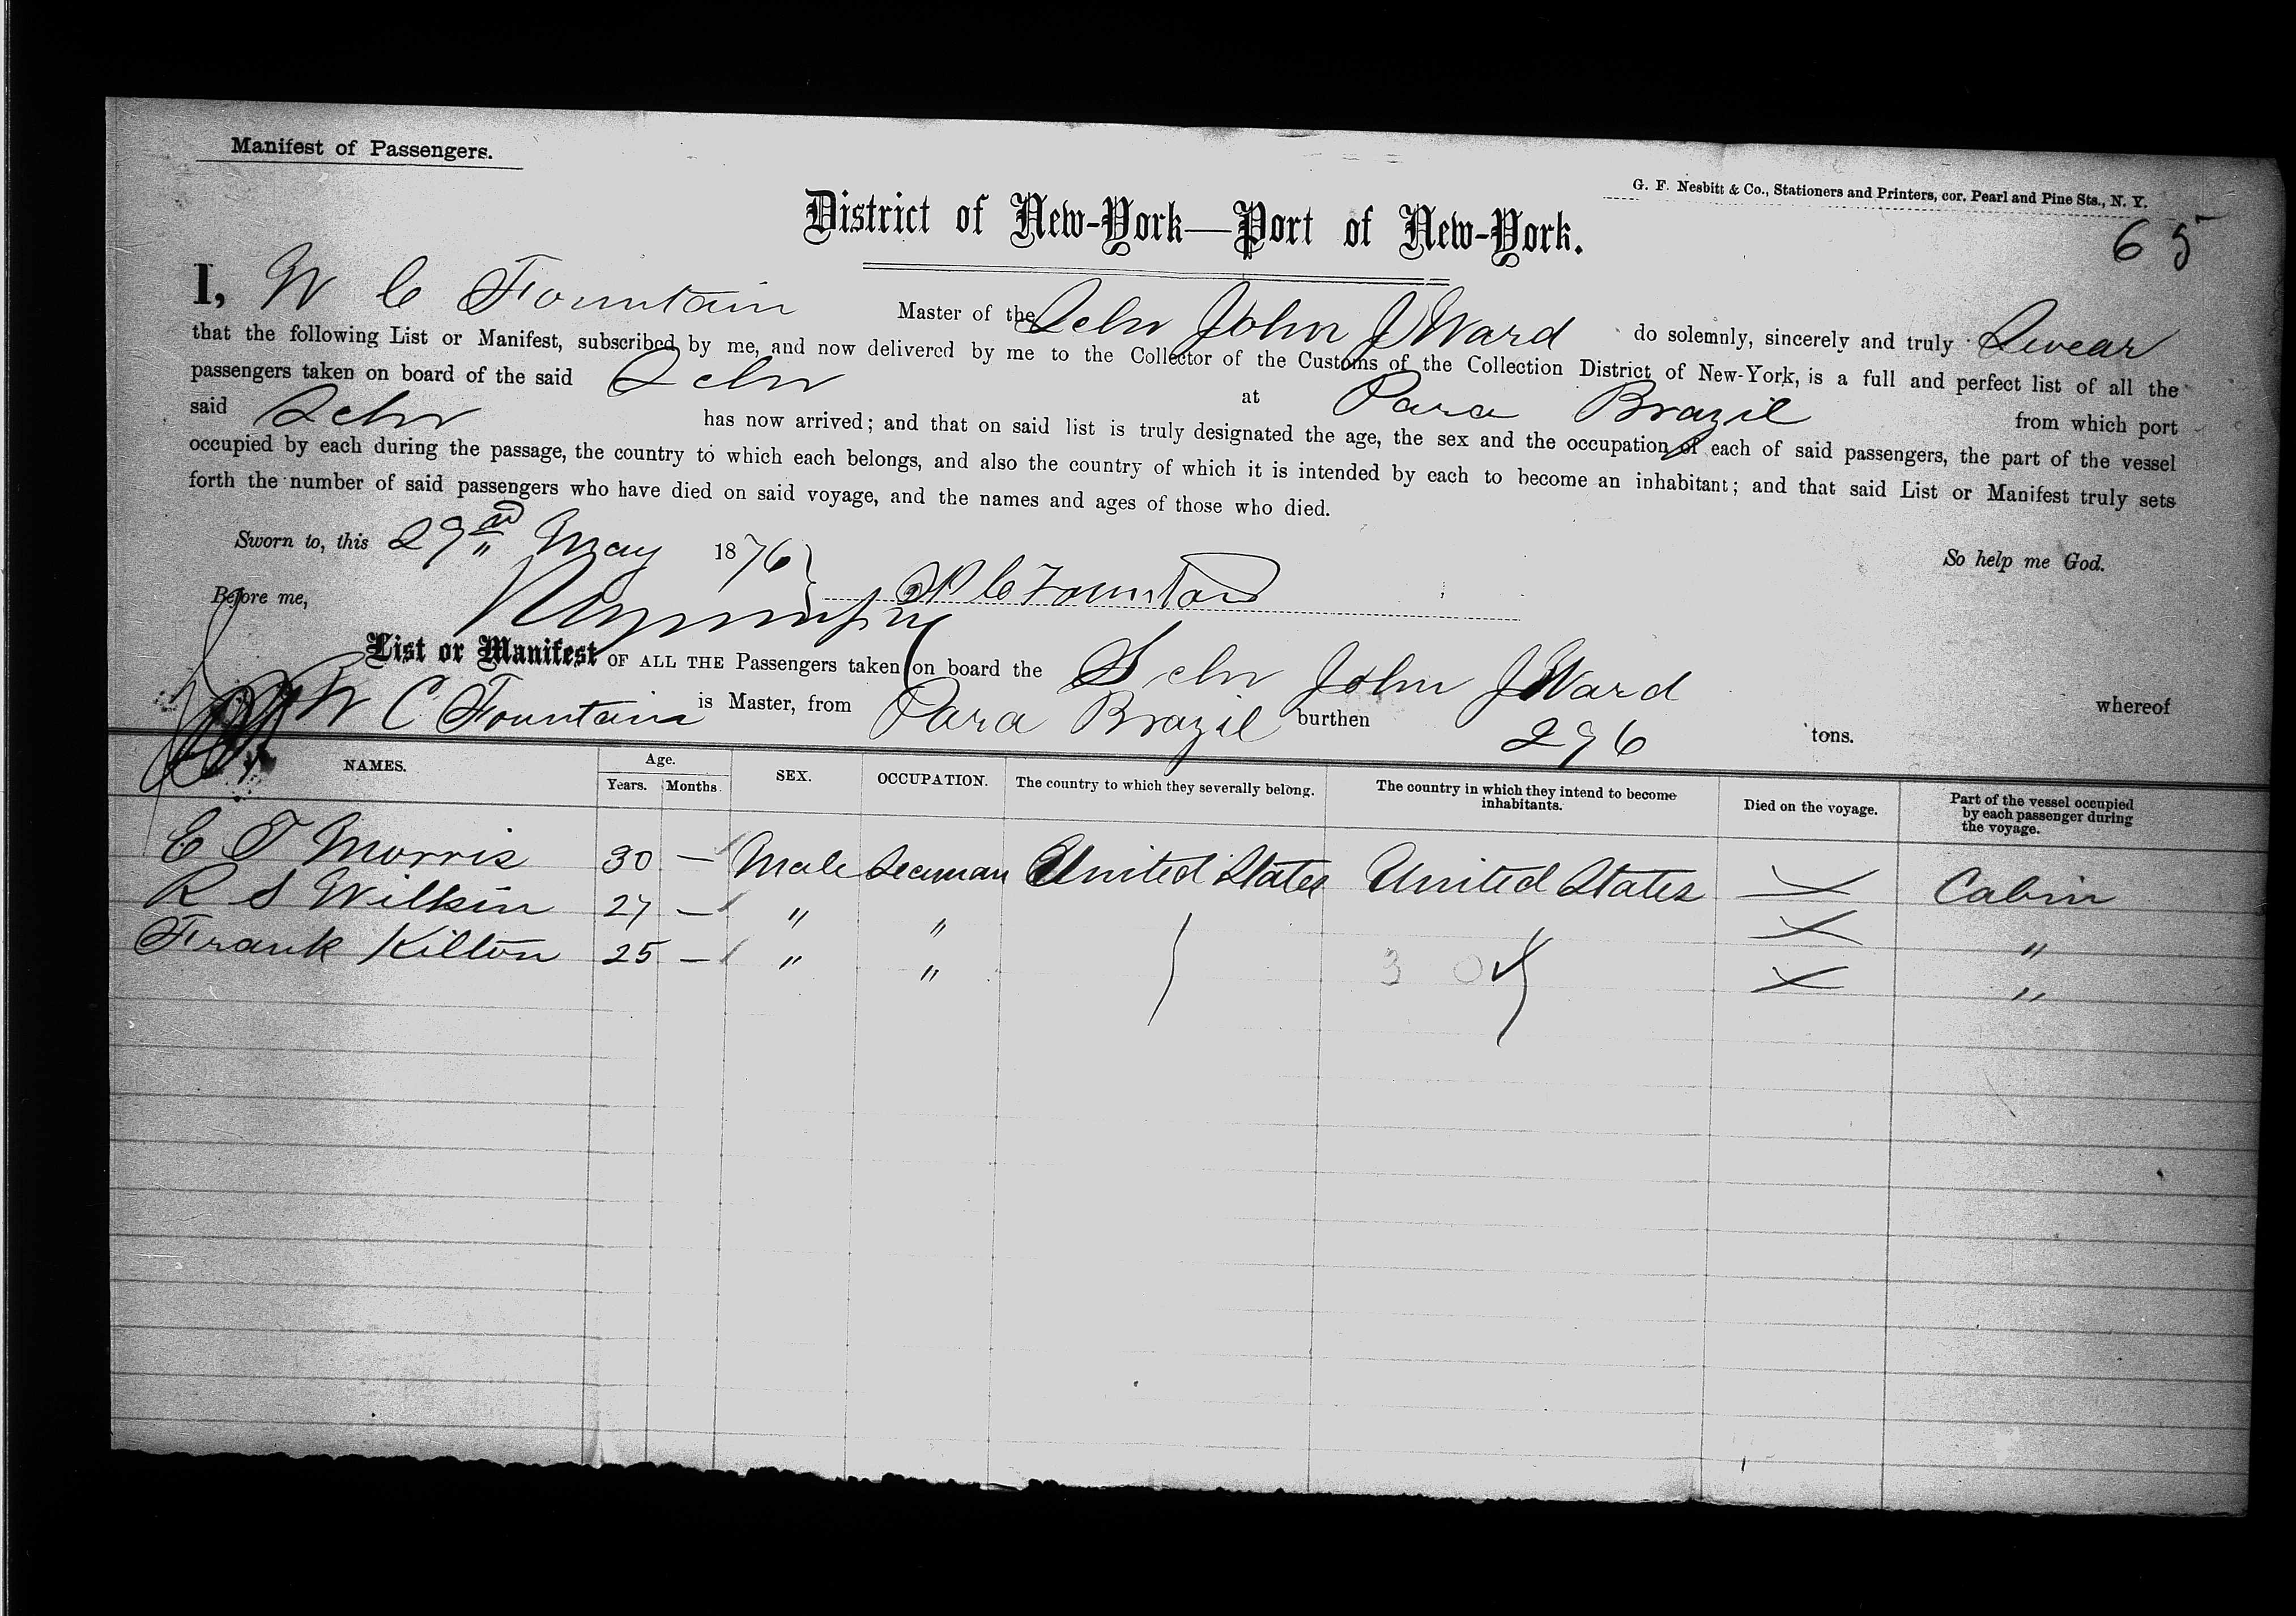 Manifest of Passengers.
G. F. Nesbitt & Co., Stationers and Printers, cor. Pearl and Pine Sts., N. Y.
65
District of New-York—Port of New-York.
I, W C Fountain Master of the Schr John J Ward do solemnly, sincerely and truly Swear
that the following List or Manifest, subscribed by me, and now delivered by me to the Collector of the Customs of the Collection District of New-York, is a full and perfect list of all the
passengers taken on board of the said Schr at Para Brazil from which port
said Schr has now arrived; and that on said list is truly designated the age, the sex and the occupation of each of said passengers, the part of the vessel
occupied by each during the passage, the country to which each belongs, and also the country of which it is intended by each to become an inhabitant; and that said List or Manifest truly sets
forth the number of said passengers who have died on said voyage, and the names and ages of those who died.
Sworn to, this 29 May 1876 So help me God.
Before me, W C Fountain
List or Manifest OF ALL THE Passengers taken on board the Schr John J Ward whereof
W C Fountain is Master, from Para Brazil burthen 296 tons.
NAMES. Age. Years. Months. SEX. OCCUPATION. The country to which they severally belong. The country in which they intend to become inhabitants. Died on the voyage. Part of the vessel occupied by each passenger during the voyage.
E T Morris 30 — Male Seaman United States United States Cabin
R S Wilkin 27 — " " "
Frank Kilton 25 — " " 3 "